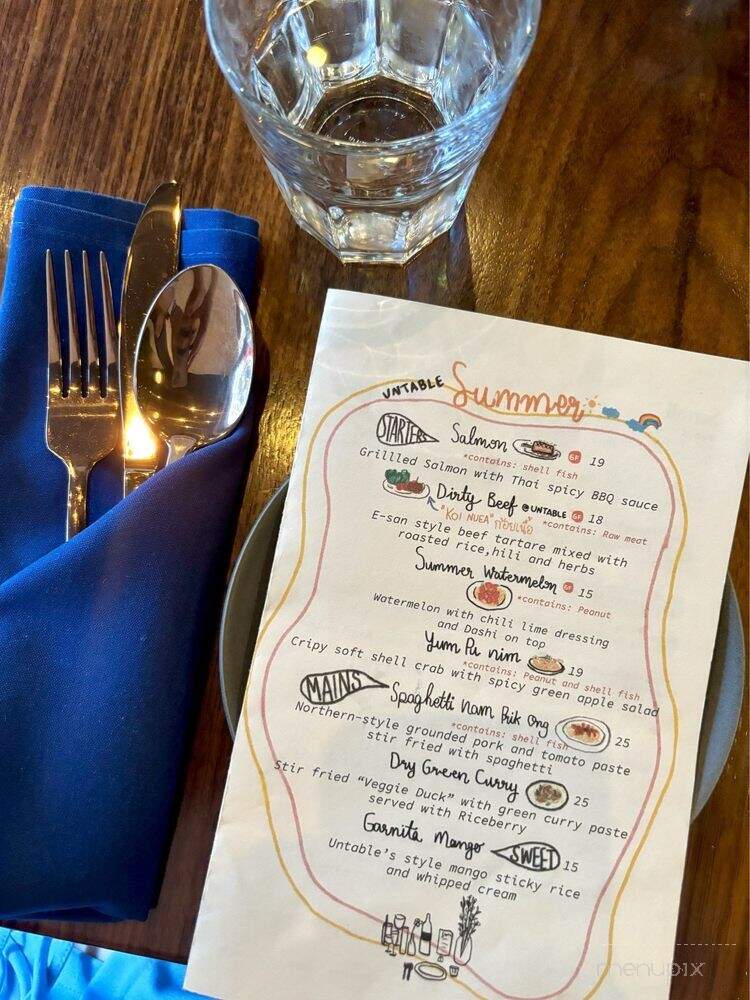 UNTABLE Summer
STARTERS
Salmon GF 19
*contains: shell fish
Grillled Salmon with Thai spicy BBQ sauce
Dirty Beef @UNTABLE GF 18
"KOI NUEA" ก้อยเนื้อ *contains: Raw meat
E-san style beef tartare mixed with
roasted rice,hili and herbs
Summer Watermelon GF 15
*contains: Peanut
Watermelon with chili lime dressing
and Dashi on top
Yum Pu nim 19
*contains: Peanut and shell fish
Cripy soft shell crab with spicy green apple salad
MAINS
Spaghetti Nam Prik Ong 25
*contains: shell fish
Northern-style grounded pork and tomato paste
stir fried with spaghetti
Dry Green Curry 25
Stir fried "Veggie Duck" with green curry paste
served with Riceberry
Garnita Mango SWEET 15
Untable's style mango sticky rice
and whipped cream
menupix